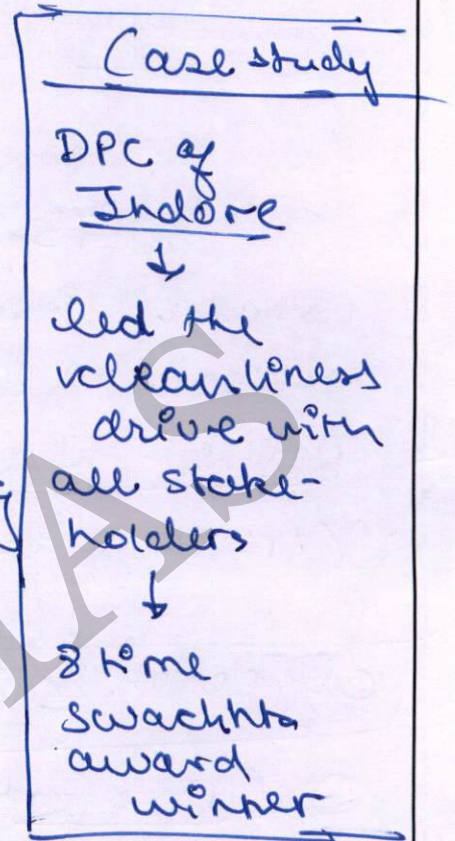 Case study
DPC of
Indore
↓
led the
cleanliness
drive with
all stake-
holders
↓
8 time
swachhta
award
winner
IAS